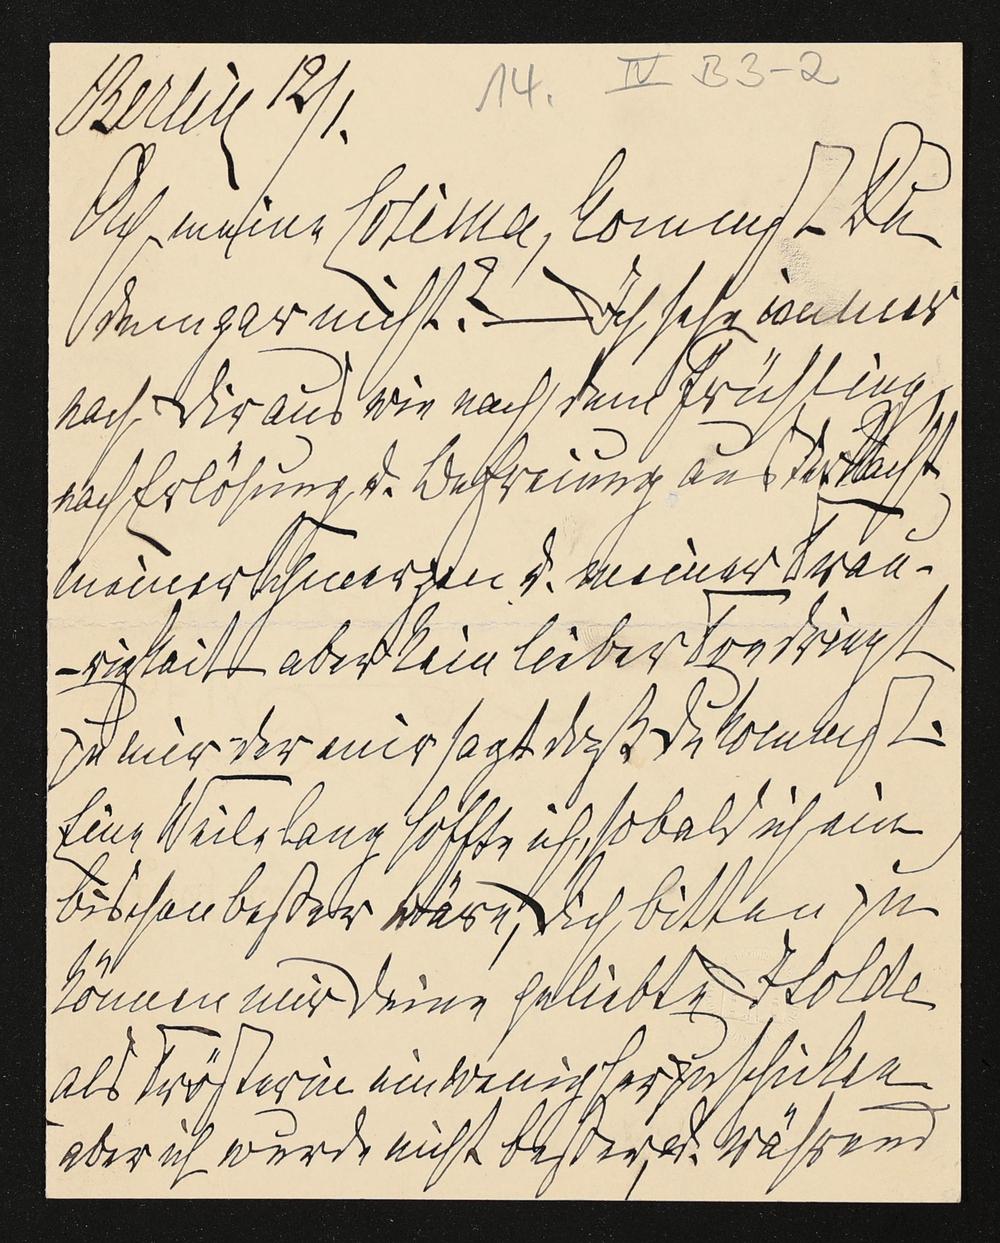 Berlin 12/1.
14. IV B 3-2
Ach meine Cosima, kommst Du
denn gar nicht? — Ich sehe immer
nach Dir aus wie nach dem Frühling,
nach Erlösung u. Befreiung aus der Nacht
meiner Schmerzen u. meiner Trau-
-rigkeit aber kein lieber Ton dringt
zu mir der mir sagt daß Du kommst.
Eine Weile lang hoffte ich, sobald ich ein
bischen beßer wäre, Dich bitten zu
können mir Deine geliebte Isolde
als Trösterin ein wenig herzuschicken
aber ich wurde nicht beßer, u. während